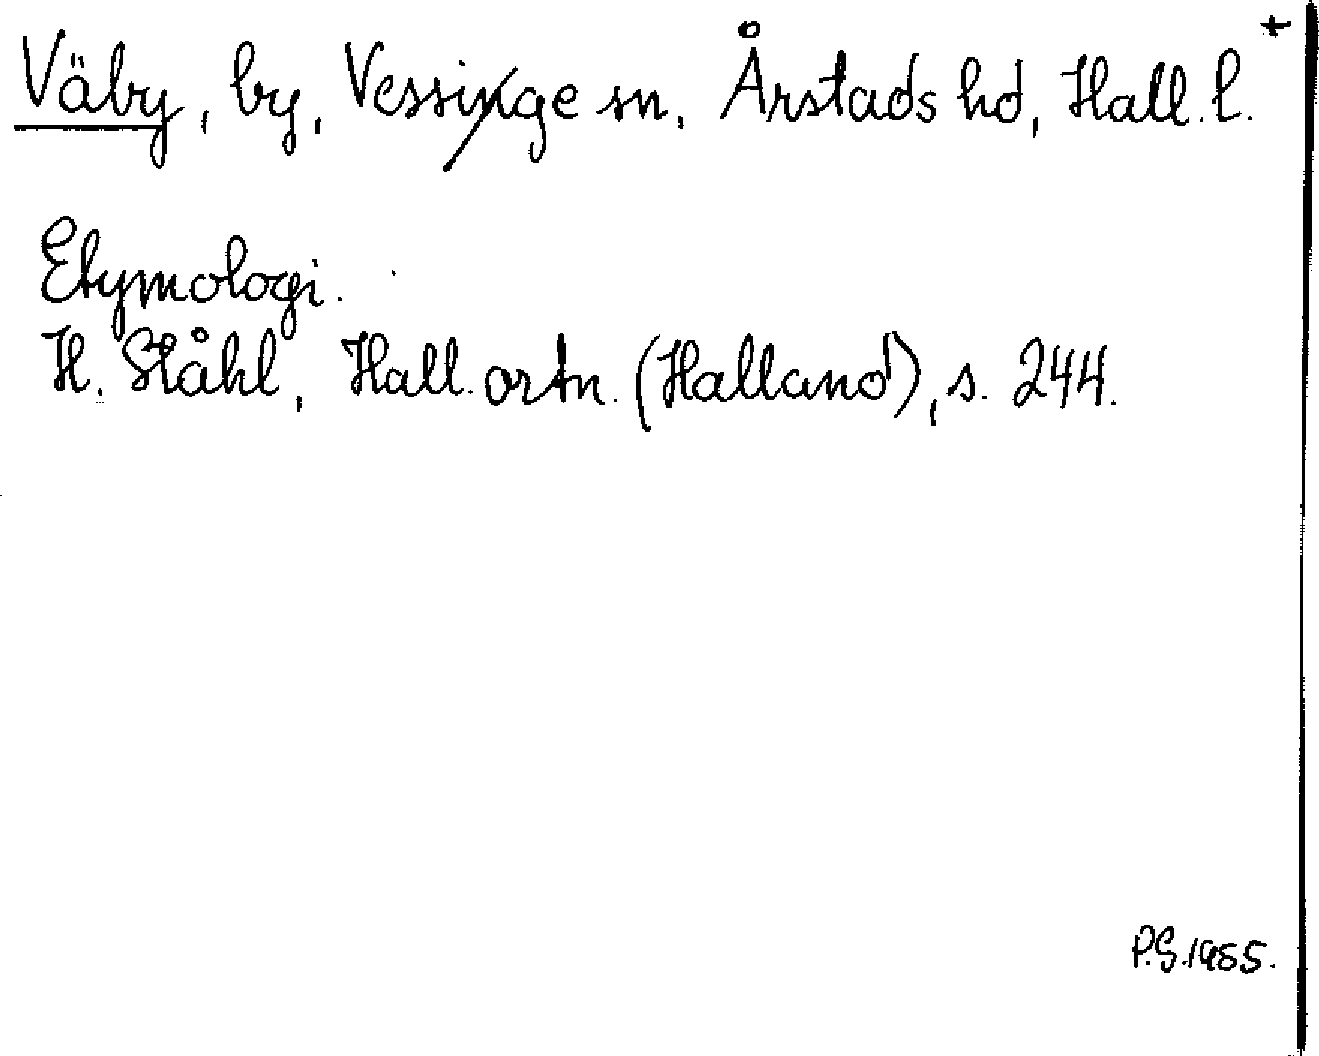 Väby, by, Vessinge sn, Årstads hd, Hall. l. +
Etymologi.
H. Ståhl, Hall. ortn. (Halland), s. 244.
P.G. 1955.